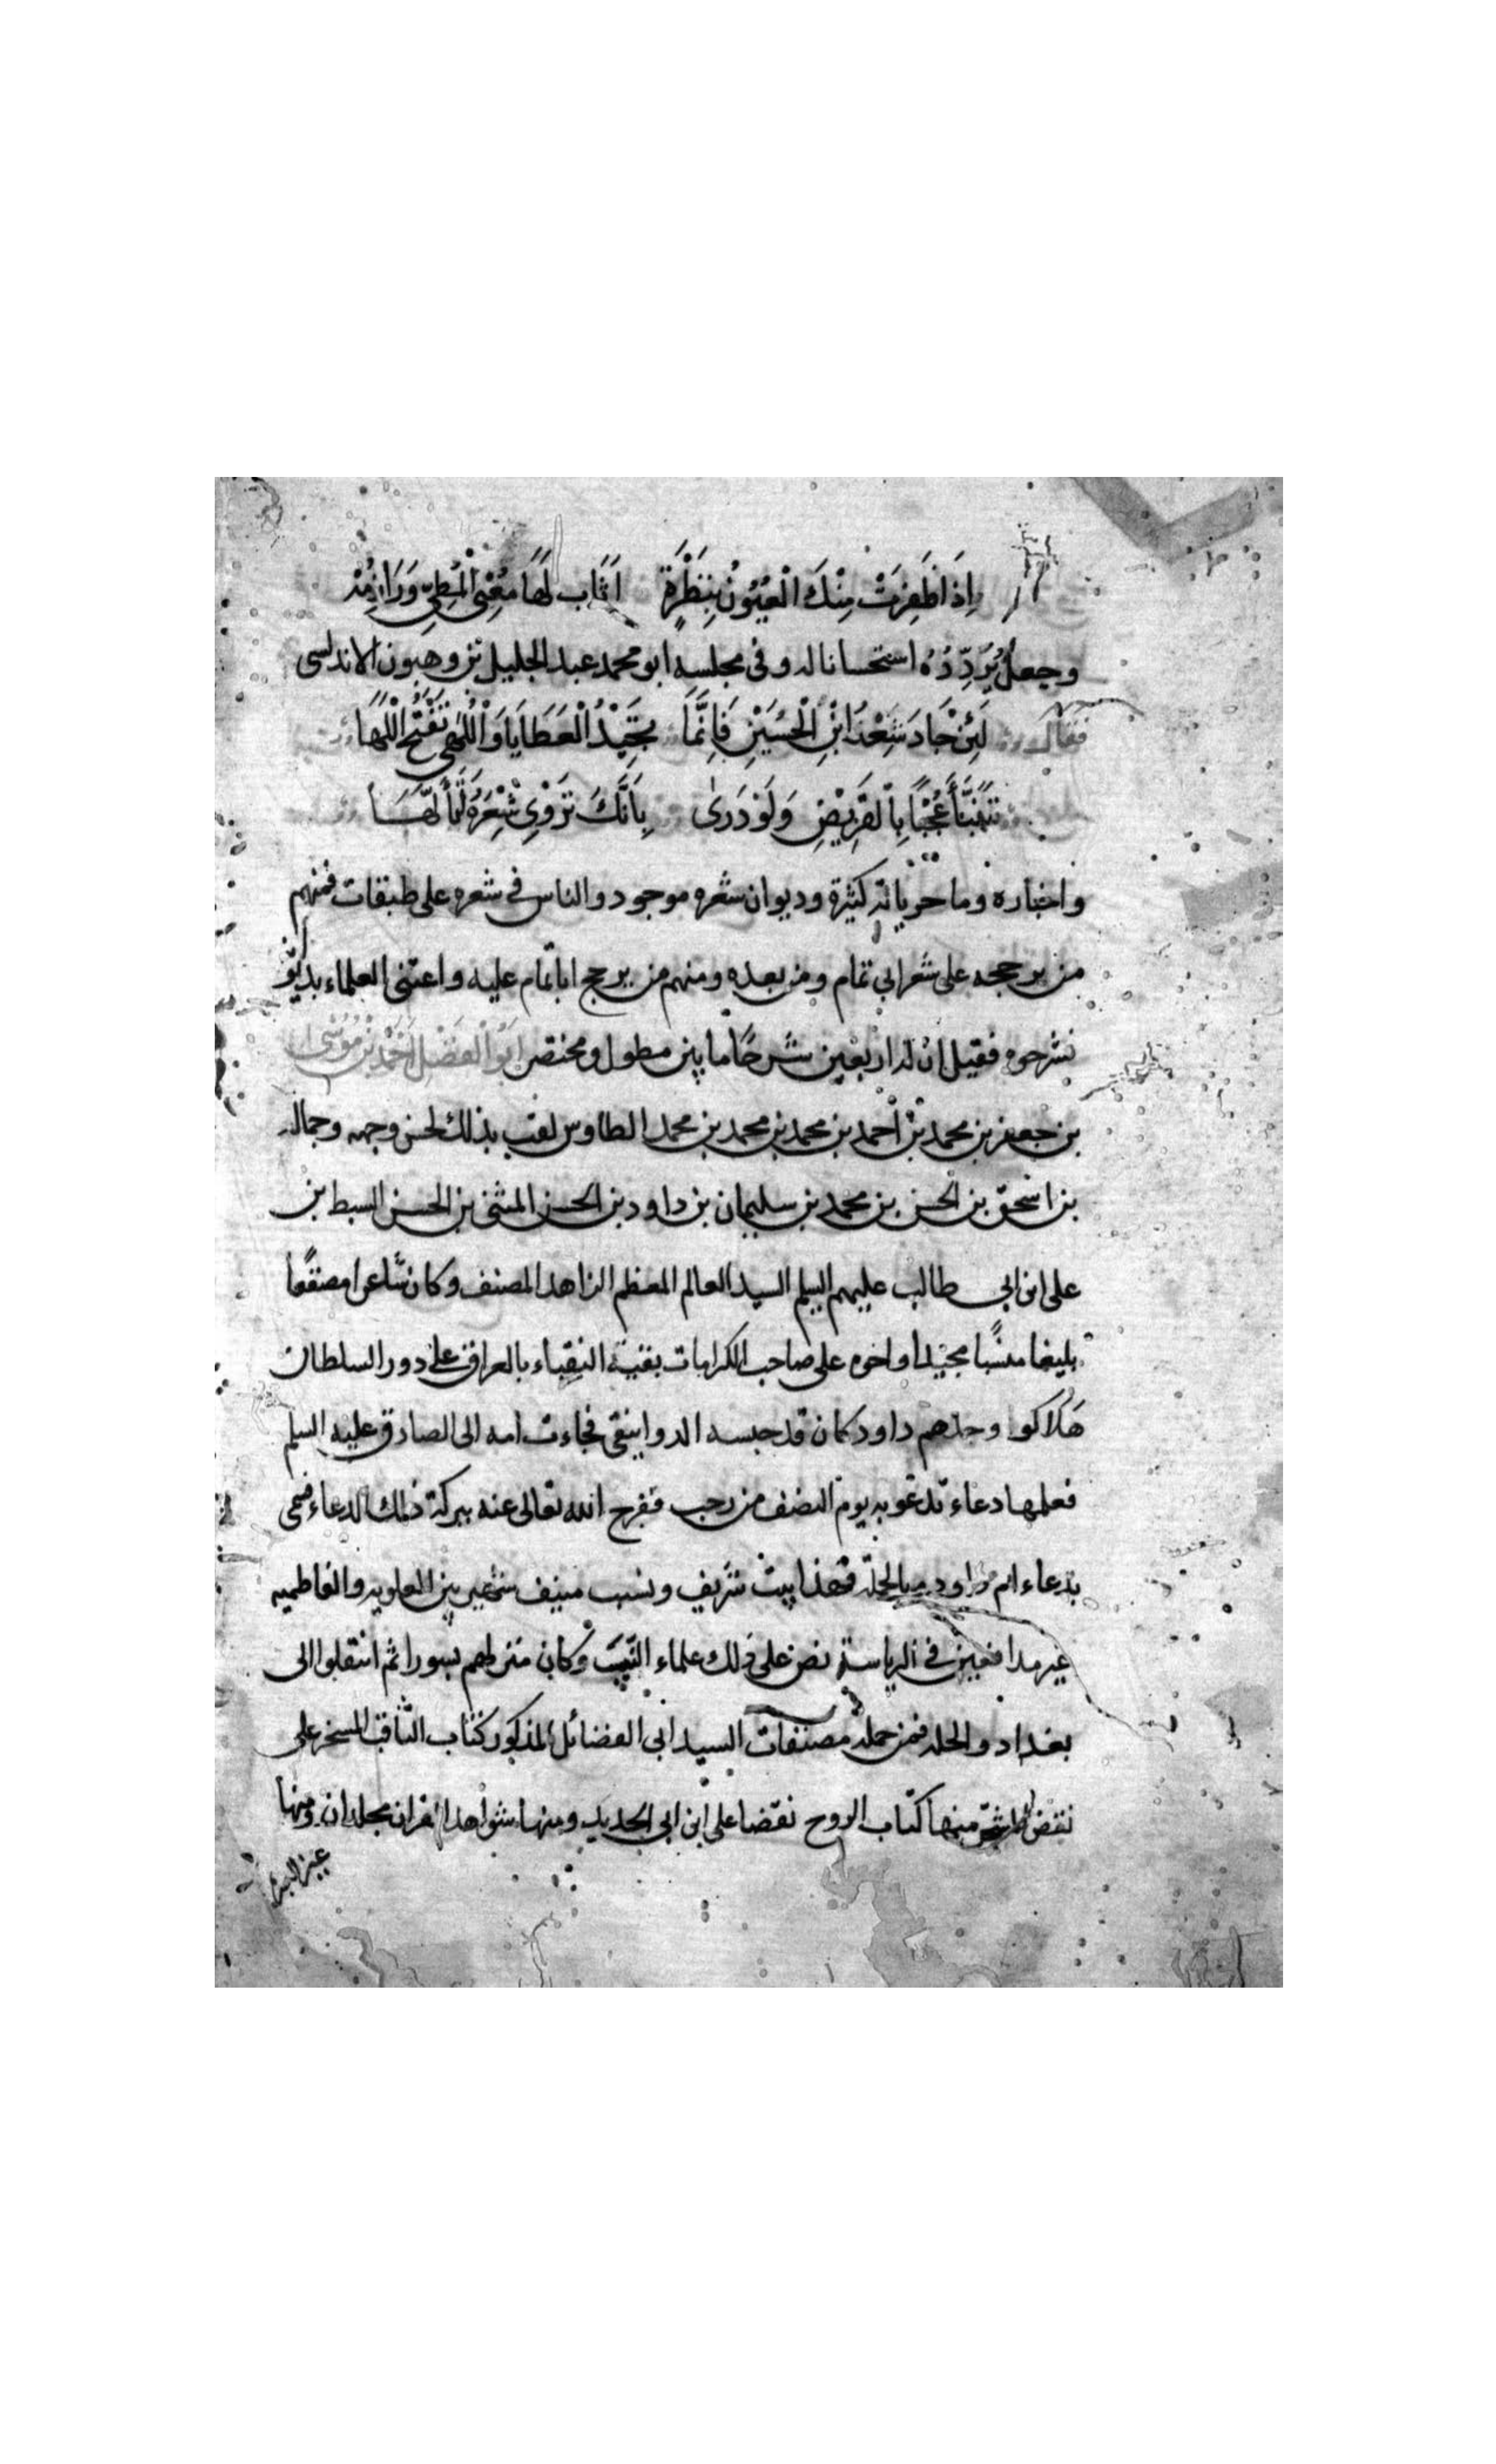 اِذَا ظَفِرَتْ مِنْكَ الْعُيُوْنُ بِنَظْرَةٍ اَثَابَ لَهَا مُعْيِي الْمَطِيِّ وَرَازِمُهْ
وجعل يُرَدِّدُهُ استحسانا له و فى مجلسه ابو محمد عبد الجليل بن وهبون الاندلسى
فقال لَئِنْ جَادَ شِعْرُ ابْنِ الْحُسَيْنِ فَاِنَّمَا تُجِيْدُ الْعَطَايَا وَاْللُّهٰى تَفْتَحُ اْللَّهَا
تَنَبَّأَ عُجْبًا بِالقَرِيْضِ وَلَوْ دَرىٰ بِاَنَّكَ تَرْوِىْ شِعْرَهُ لَتَأَلَّهَا
واخباره وما جرياته كثيرة وديوان شعره موجود والناس فى شعره على طبقات فمنهم
من يرججه على شعر ابي تمام ومن بعده ومنهم من يرجح ابا تمام عليه واعتنى العلماء بديوانه
فشرحوه فقيل ان له اربعين شرحًا ما بين مطول ومختصر اَبُو الْفَضَائِل اَحْمَد بْن مُوْسٰى
بن جعفر بن محمد بن أحمد بن محمد بن محمد بن محمد الطاوس لقب بذلك لحسن وجهه وجماله
بن اسحق بن الحسن بن محمد بن سليمان بن داود بن الحسن المثنى بن الحسن السبط بن
على ابن ابي طالب عليهم السلم السيد العالم المعظم الزاهد المصنف وكان شاعرا مصقعًا
بليغا منشيا مجيدا واخوه على صاحب الكرامات بقية النقباء بالعراق على دور السلطان
هَلاكو وجدّهم داود كان قد حبسه الدوانيقى فجاءت امه الى الصادق عليه السلم
فعلمها دعاء تدعو به يوم النصف من رجب ففرج الله تعالى عنه ببركة ذلك الدعاء فسمى
بدعاء ام داود وبالجملة فهذا بيت شريف ونسب منيف شهير بين العلويه والفاطميه
غير مدافعين فى الرياسة نص على ذلك علماء النّسب وكان منزلهم بسورا ثم انتقلوا الى
بغداد والحلة فمن جملة مصنفات السيد ابى الفضائل المذكور كتاب الثاقب المسخر على
نقض المشجّر منها كتاب الروح نقضا على ابن ابى الحديد ومنها شواهد القران مجلدان ومنها
عين العبرة